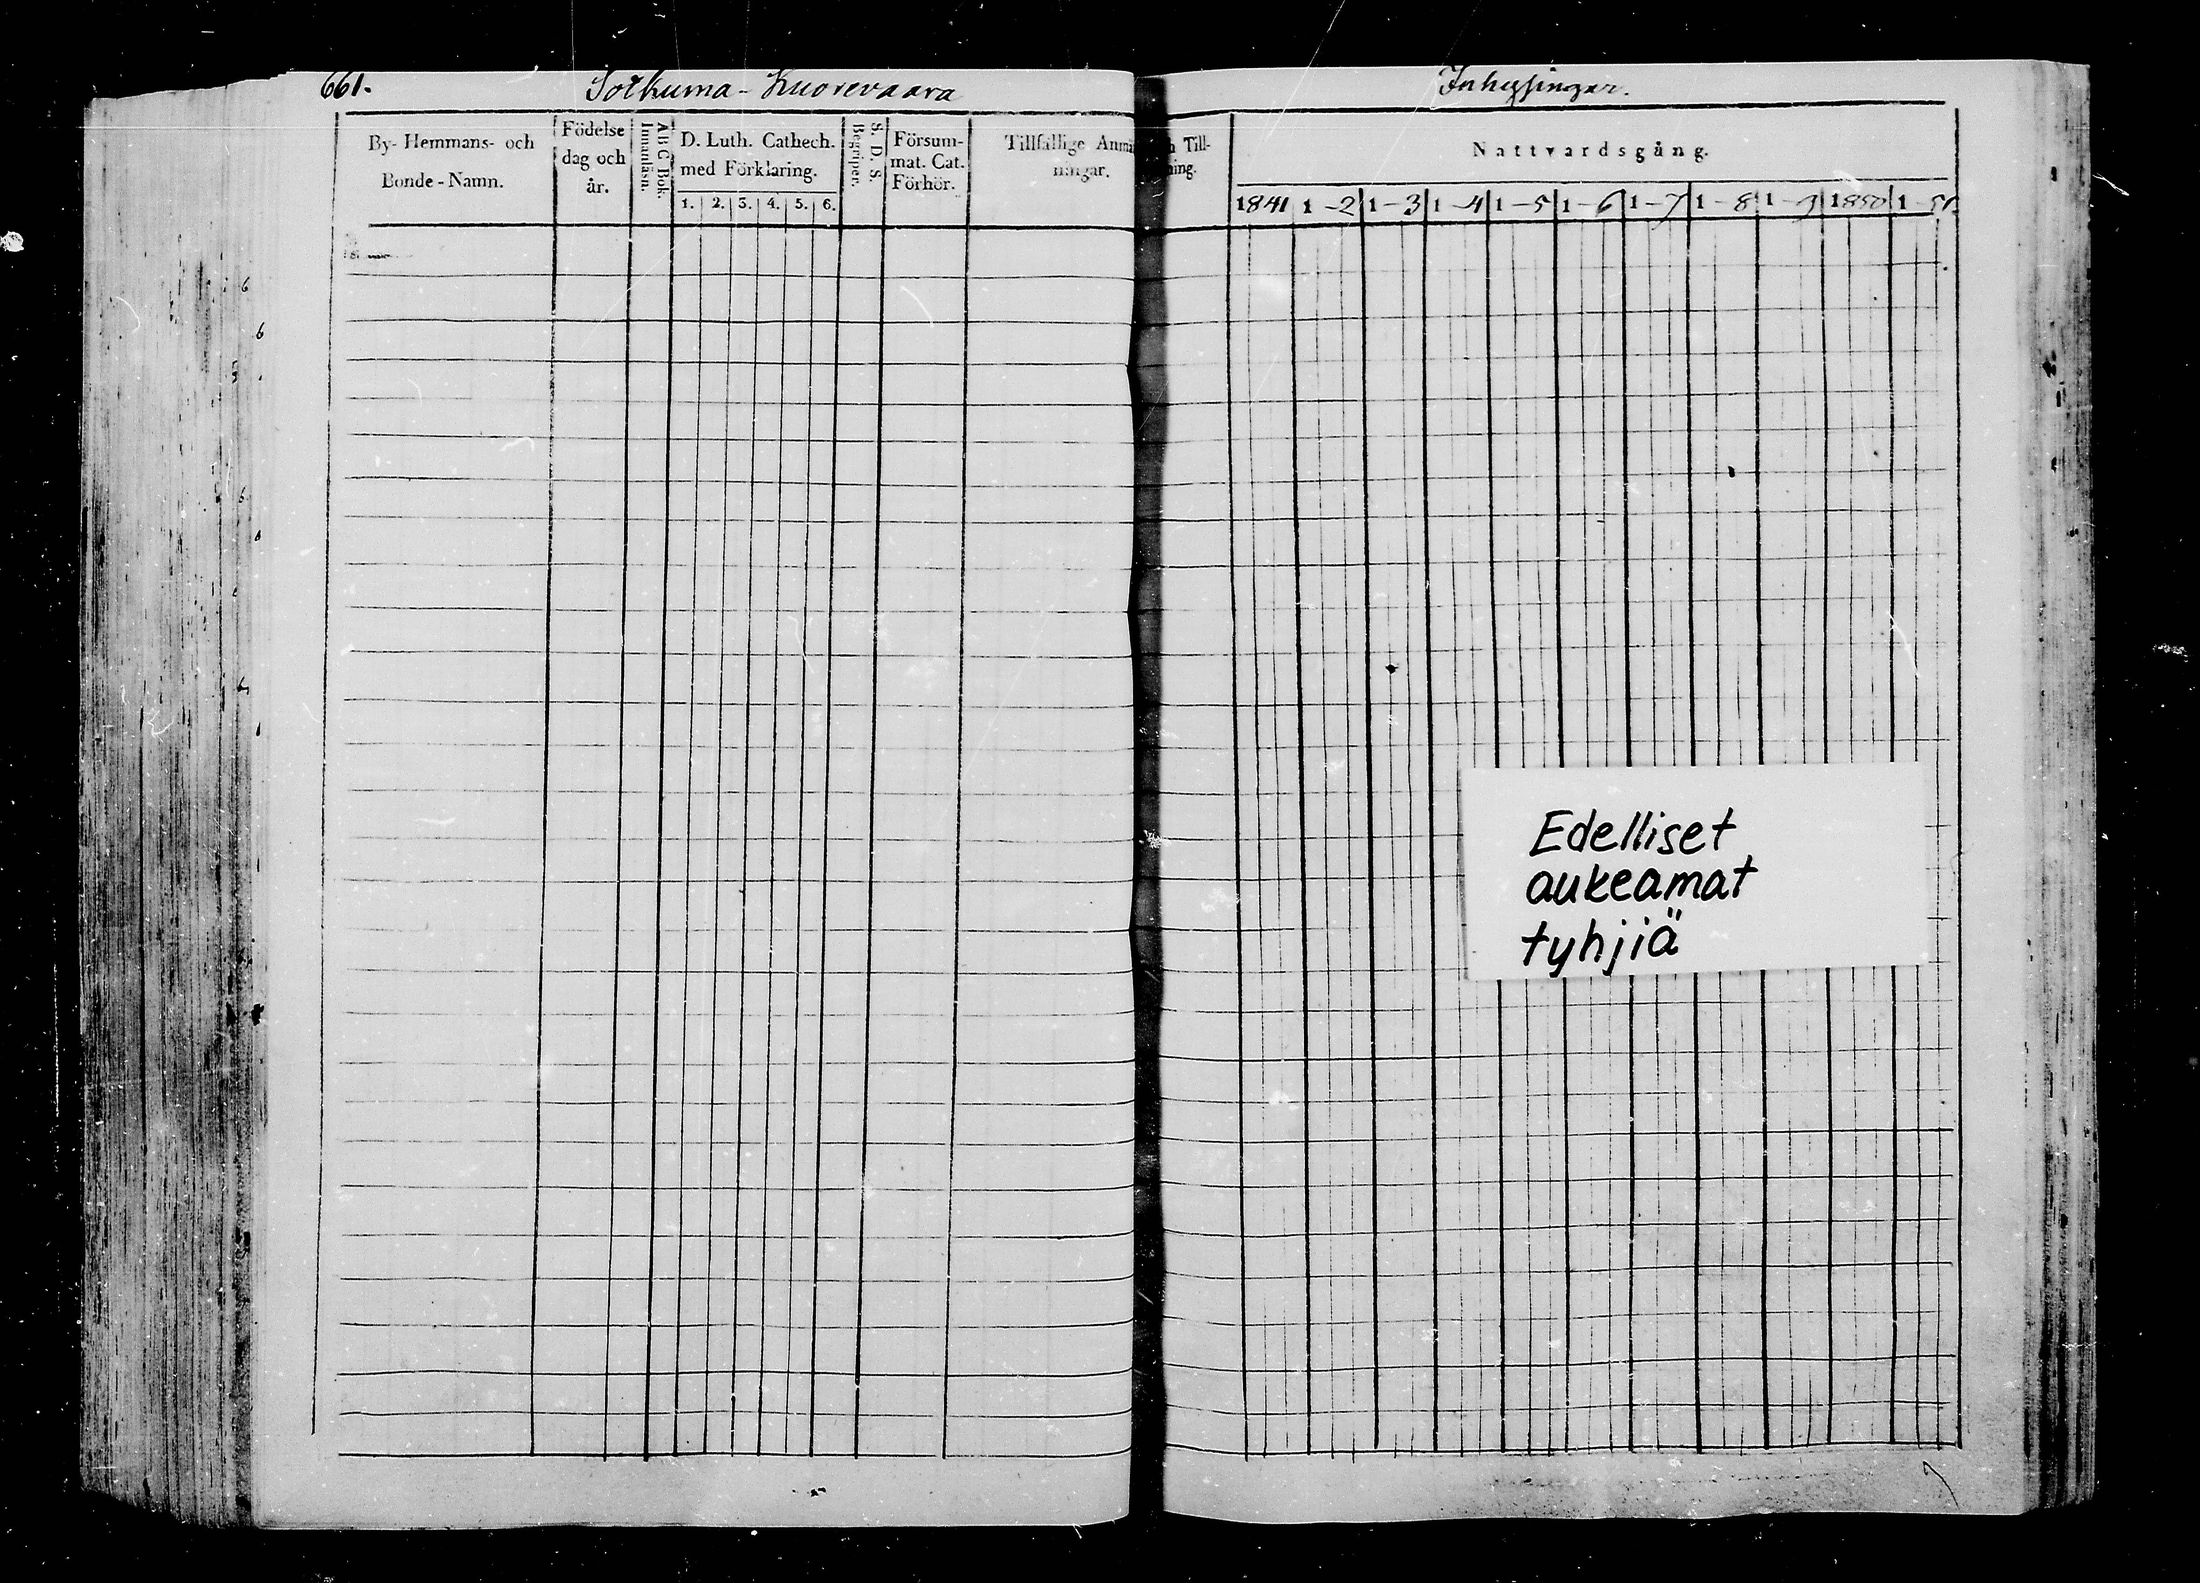 661.
Sotkuma - Kuorevaara
Inhysingar.
By- Hemmans- och
Bonde-Namn.
Födelse
dag och
år.
A B C Bok.
Innanläsn.
D. Luth. Cathech.
med Förklaring.
1. 2. 3. 4. 5. 6.
S. D. S.
Begriper.
Försum-
mat. Cat.
Förhör.
Tillfällige Anmä
ningar.
h Till-
ning.
Nattvardsgång.
1841 1-2 1-3 1-4 1-5 1-6 1-7 1-8 1-9 1850 1-51.
Edelliset
aukeamat
tyhjiä